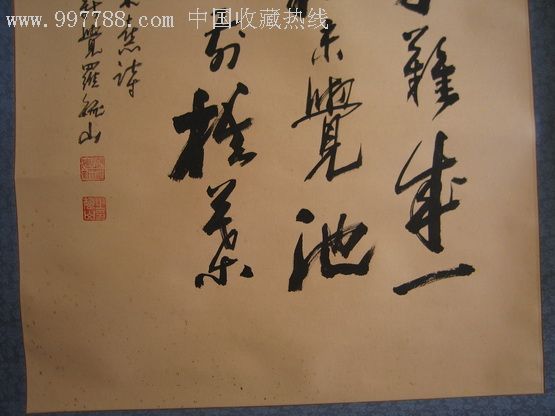 www.997788.com 中国收藏热线
難成一
未覺池
前梧葉
熹詩
覺羅毓山